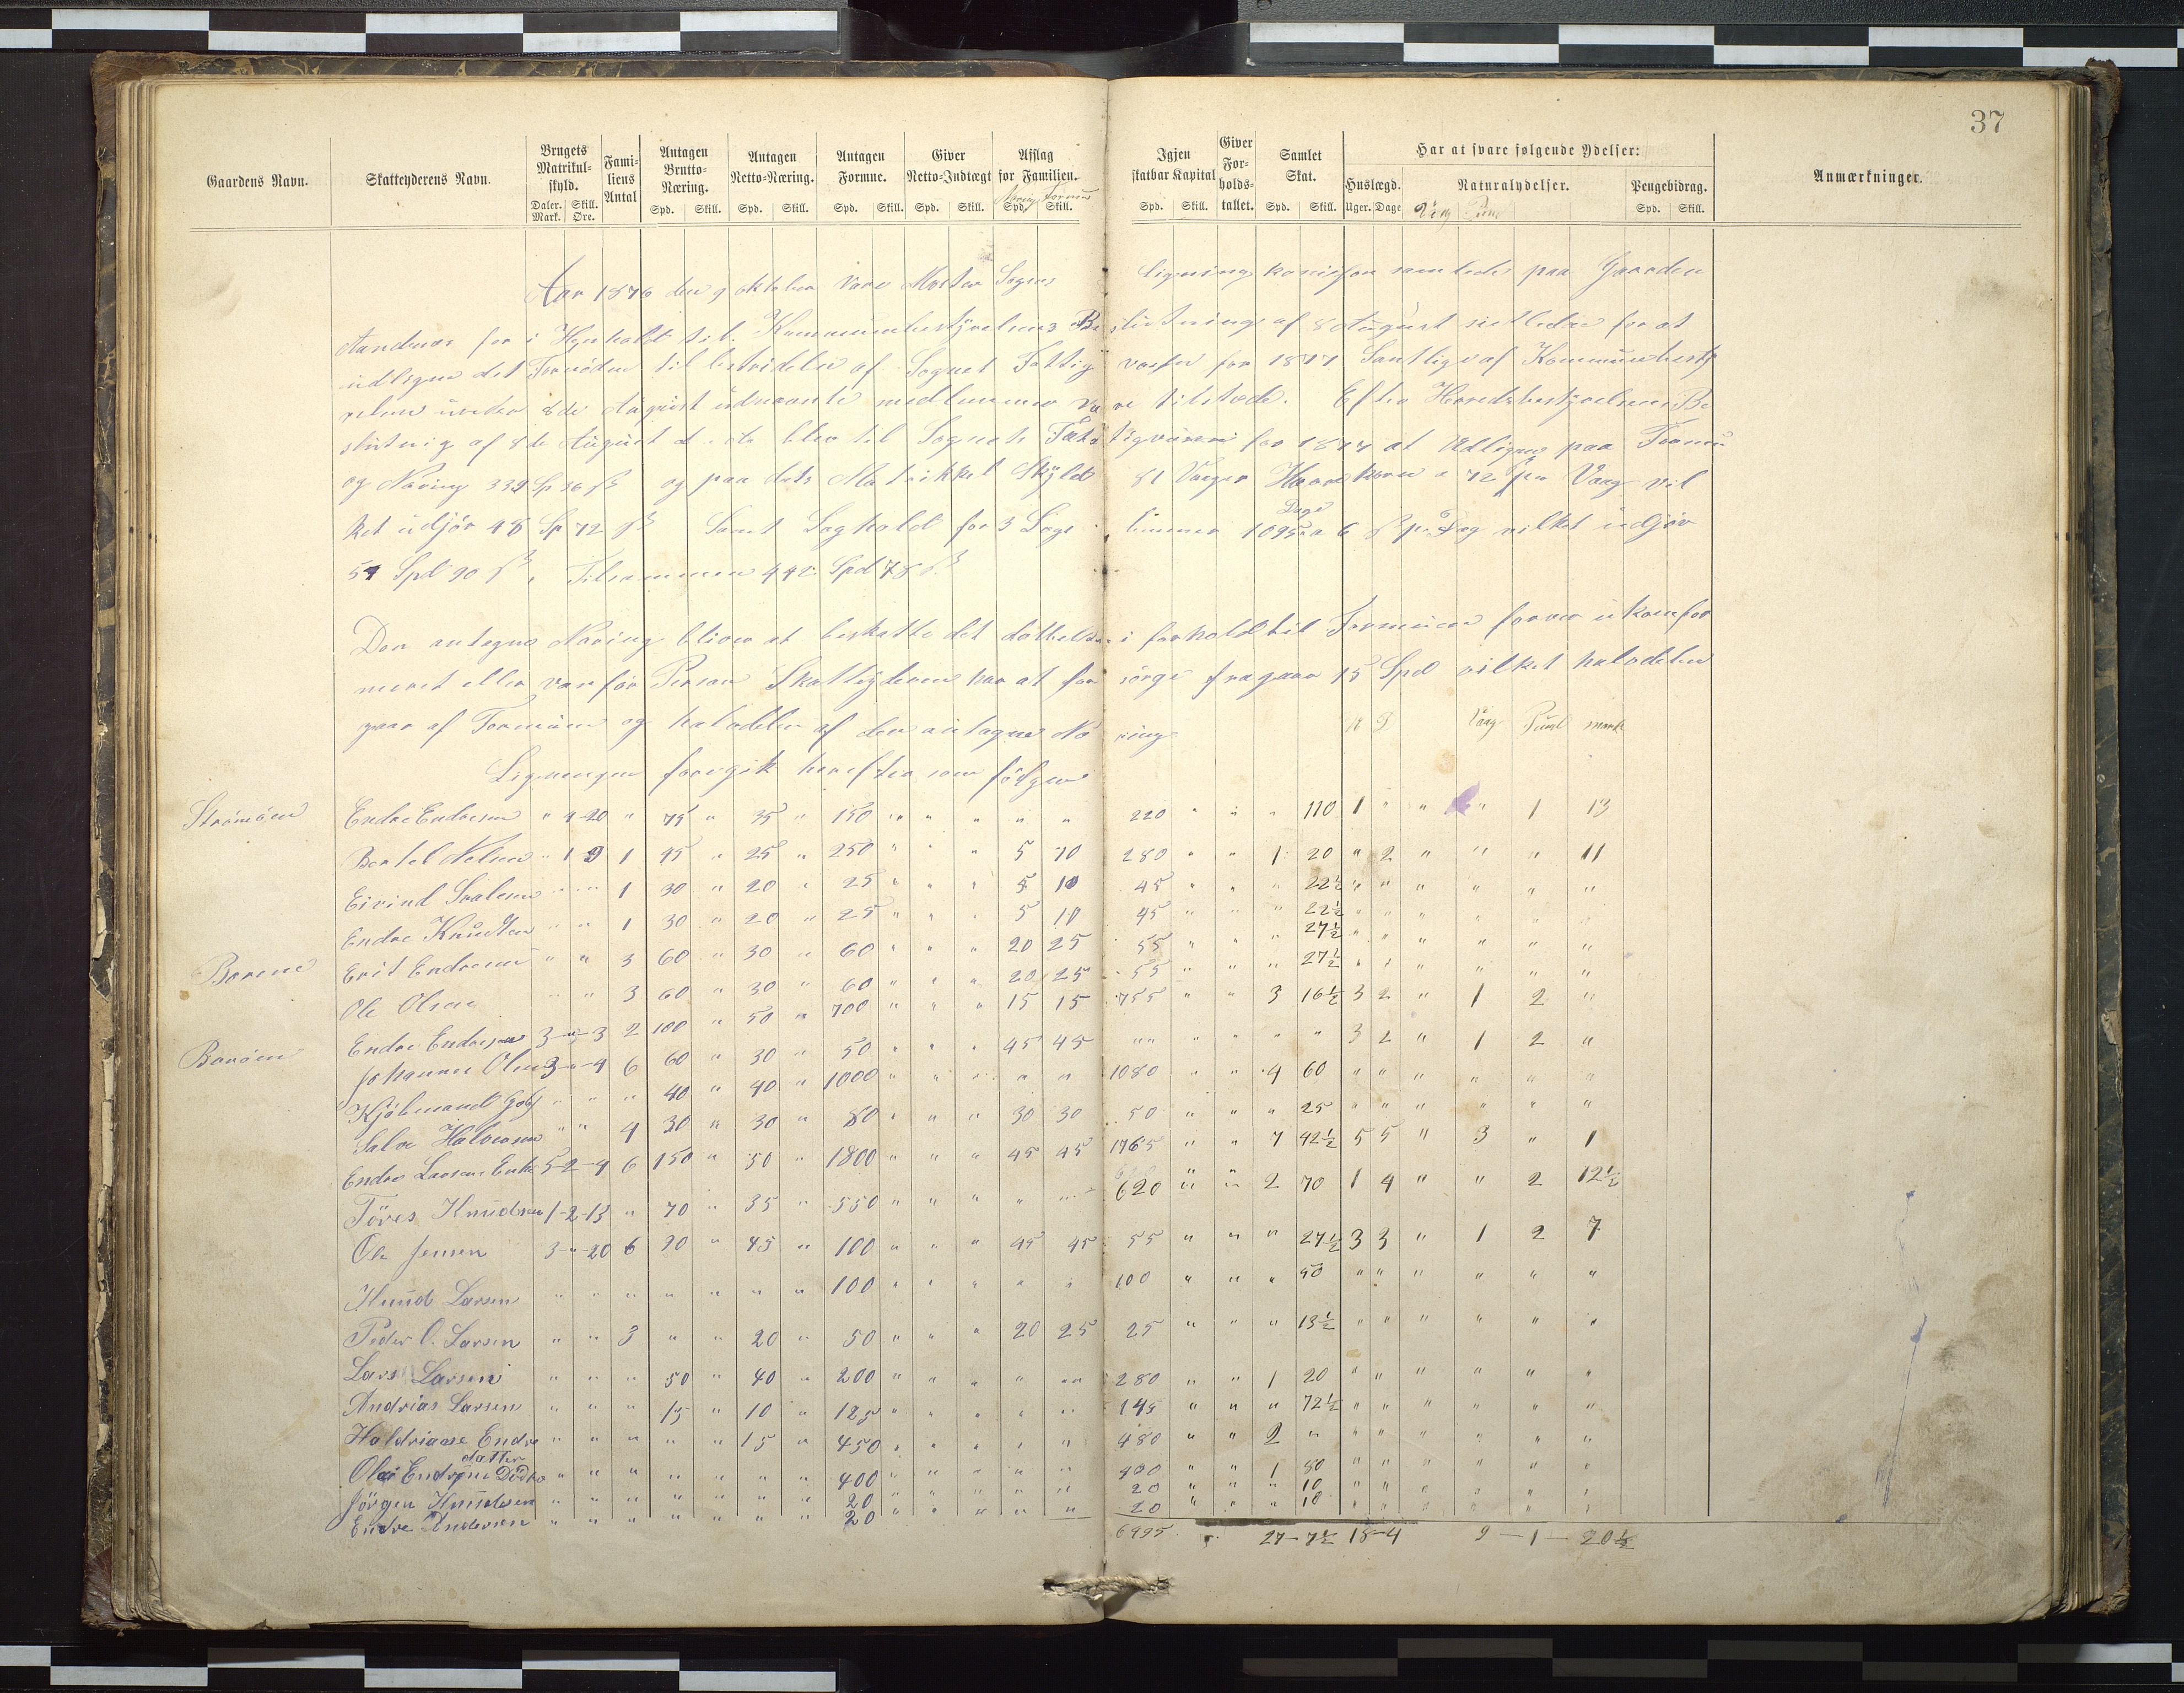 37
Gaardens Navn. Skatteyderens Navn. Brugets Matrikul-skyld. Daler. Mark. Skill. Øre. Fami-liens Antal Antagen Brutto-Næring. Spd. Skill. Antagen Netto-Næring. Spd. Skill. Antagen Formue. Spd. Skill. Giver Netto-Indtægt Spd. Skill. Afslag for Familien. Næring Formue Spd. Skill. Igjen skatbar Kapital Spd. Skill. Giver For-holds-tallet. Samlet Skat. Spd. Skill. Har at svare følgende Ydelser: Huslægd. Uger. Dage Naturalydelser. Pengebidrag. Spd. Skill. Anmærkninger.
Aar 1876 den 9 oktober vare Sogns Ligning samlede paa Gaarden
for i Henhold til Kommunebestyrelsens Beslutning af 8 August sistleden for at
udligne det Fornödne til bestridelse af Sognet Fattig for 1877 Samtlige af Kommunebesty
relsen under 8de August udnævnte medlemmer vare tilstæde. Efter Heredsbestyrelsens Be
slutnig af 8de August blev til Sognets Fattigväsen for 1877 at Udlignes paa Formu
og Næring 339 Sp 36 ß og paa dets Matrikkel Skyld 81 Vaager Korn a 72 ß pr Vaag vil
ket udjör 48 Sp 72 ß Samt Laghold for 3 1095 Dage a 6 ß pr Dag vilket udjör
54 Spd 90 ß, Tilsammen 442 Spd 78 ß
Den antagne Næring bliver at beskatte det dobbelte i forhold til Formuen
meret eller var för Person Skatteyderen har at forsörge fragaar 15 Spd vilket halvdelen
gaar af Formuen og halvdelen af den antagne Næring U D Vaag Pund mark
Ligningen foregik herefter som fölger
Strömöen Endre Endresen " 4-20 " 75 " 35 " 150 " " " " " 220 " " " 110 1 " " " 1 13
Bertel Nelsen " 1 9 1 45 " 25 " 250 " " " 5 10 280 " " 1 20 " 2 " " " 11
Eivind " " 1 30 " 20 " 25 " " " 5 10 45 " " " 22½ " " " " " "
Endre Knudsen " " 1 30 " 20 " 25 " " " 5 10 45 " " " 22½ " " " " " "
Erik Endresen " " 3 60 " 30 " 60 " " " 20 25 55 " " " 27½ " " " " " "
Ole Olsen " " 3 60 " 30 " 60 " " " 20 25 55 " " " 27½ " " " " " "
Endre Endresen 3-"-3 2 100 " 50 " 700 " " " 15 15 755 " " 3 16½ 3 2 " 1 2 "
Johannes Olsen 3-"-4 6 60 " 30 " 50 " " " 45 45 " " " " " " 3 2 " 1 2 "
Kjöbmand " " " 40 " 40 " 1000 " " " " " 1080 " " 4 60 " " " " " "
Salve Halvorsen " " 4 30 " 30 " 80 " " " 30 30 50 " " " 25 " " " " " "
Endre Larsens Enke 5-2-4 6 150 " 50 " 1800 " " " 45 45 1765 " " 7 42½ 5 5 " 3 " 1
Töres Knudsen 1-2-13 " 70 " 35 " 550 " " " " " 620 " " 2 70 1 4 " " 2 12½
Ole Jensen 3-"-20 6 90 " 45 " 100 " " " 45 45 55 " " " 27½ 3 3 " 1 2 7
Knud Larsen " " " " " " " 100 " " " " " 100 " " " 50 " " " " " "
Peder O. Larsen " " 3 " " 20 " 50 " " " 20 25 25 " " " 13½ " " " " " "
Lars Larsen " " " 50 " 40 " 200 " " " " " 280 " " 1 20 " " " " " "
Andrias Larsen " " " 15 " 10 " 125 " " " " " 145 " " " 72½ " " " " " "
Endre datter " " " " " 15 " 450 " " " " " 480 " " 2 " " " " " " "
" " " " " " " 400 " " " " " 400 " " 1 80 " " " " " "
Jörgen Knudsen " " " " " " " 20 " " " " " 20 " " " 10 " " " " " "
Endre Andersen " " " " " " " 20 " " " " " 20 " " " 10 " " " " " "
6495 27-7½ 18-4 9-1-20½